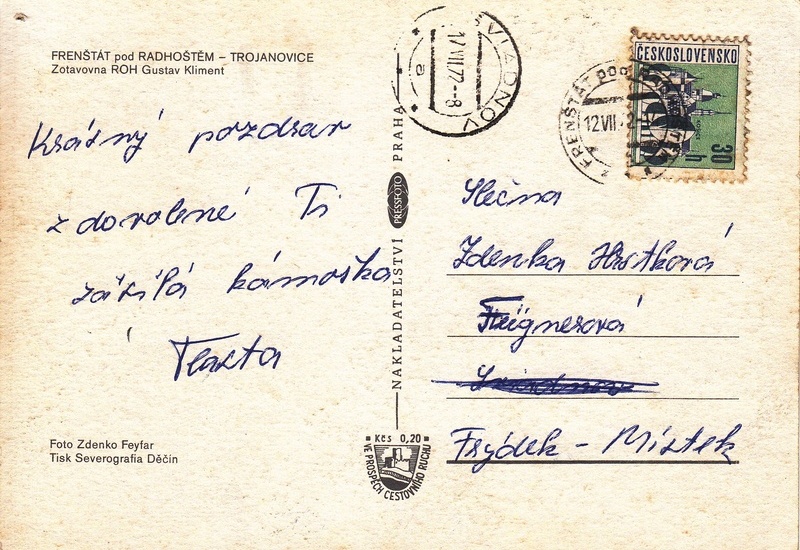 FRENŠTÁT pod RADHOŠTĚM – TROJANOVICE
Zotavovna ROH Gustav Kliment
Krásný pozdrav
z dovolené Ti
zasílá kámoška
Vlasta
Foto Zdenko Feyfar
Tisk Severografia Děčín
NAKLADATELSTVÍ PRESSFOTO PRAHA
Kčs 0,20
VE PROSPĚCH CESTOVNÍHO RUCHU
SVIADNOV
17.VII.72–8
a
FRENŠTÁT POD
12.VII.
ČESKOSLOVENSKO
30 h
Slečna
Zdenka Hrstková
Feignerová
Frýdek – Místek